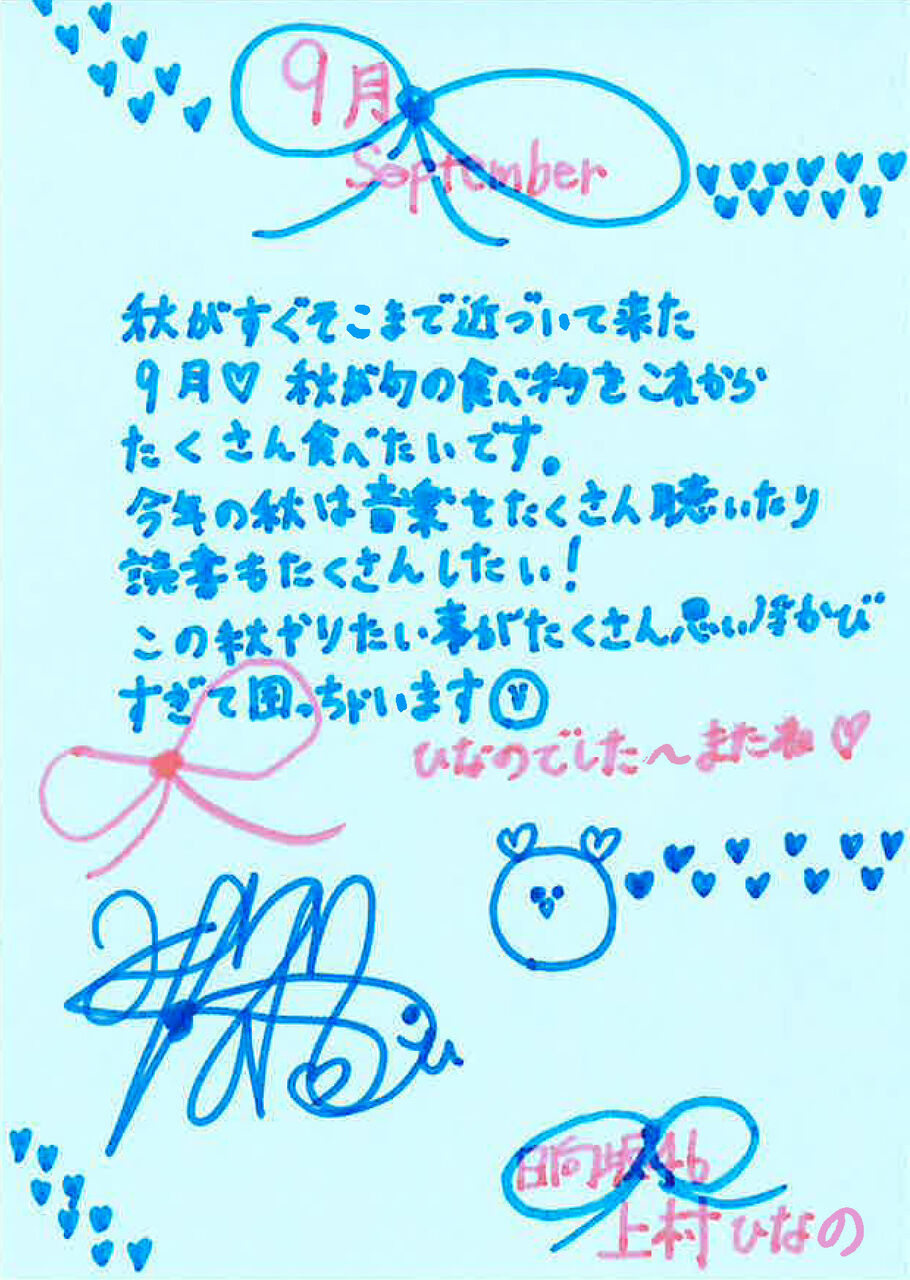 9月
September
秋がすぐそこまで近づいて来た
9月♡ 秋が旬の食べ物をこれから
たくさん食べたいです。
今年の秋は音楽をたくさん聴いたり
読書もたくさんしたい!
この秋やりたい事がたくさん思い浮かび
すぎて困っちゃいます
ひなのでした〜またね♡
日向坂46
上村ひなの